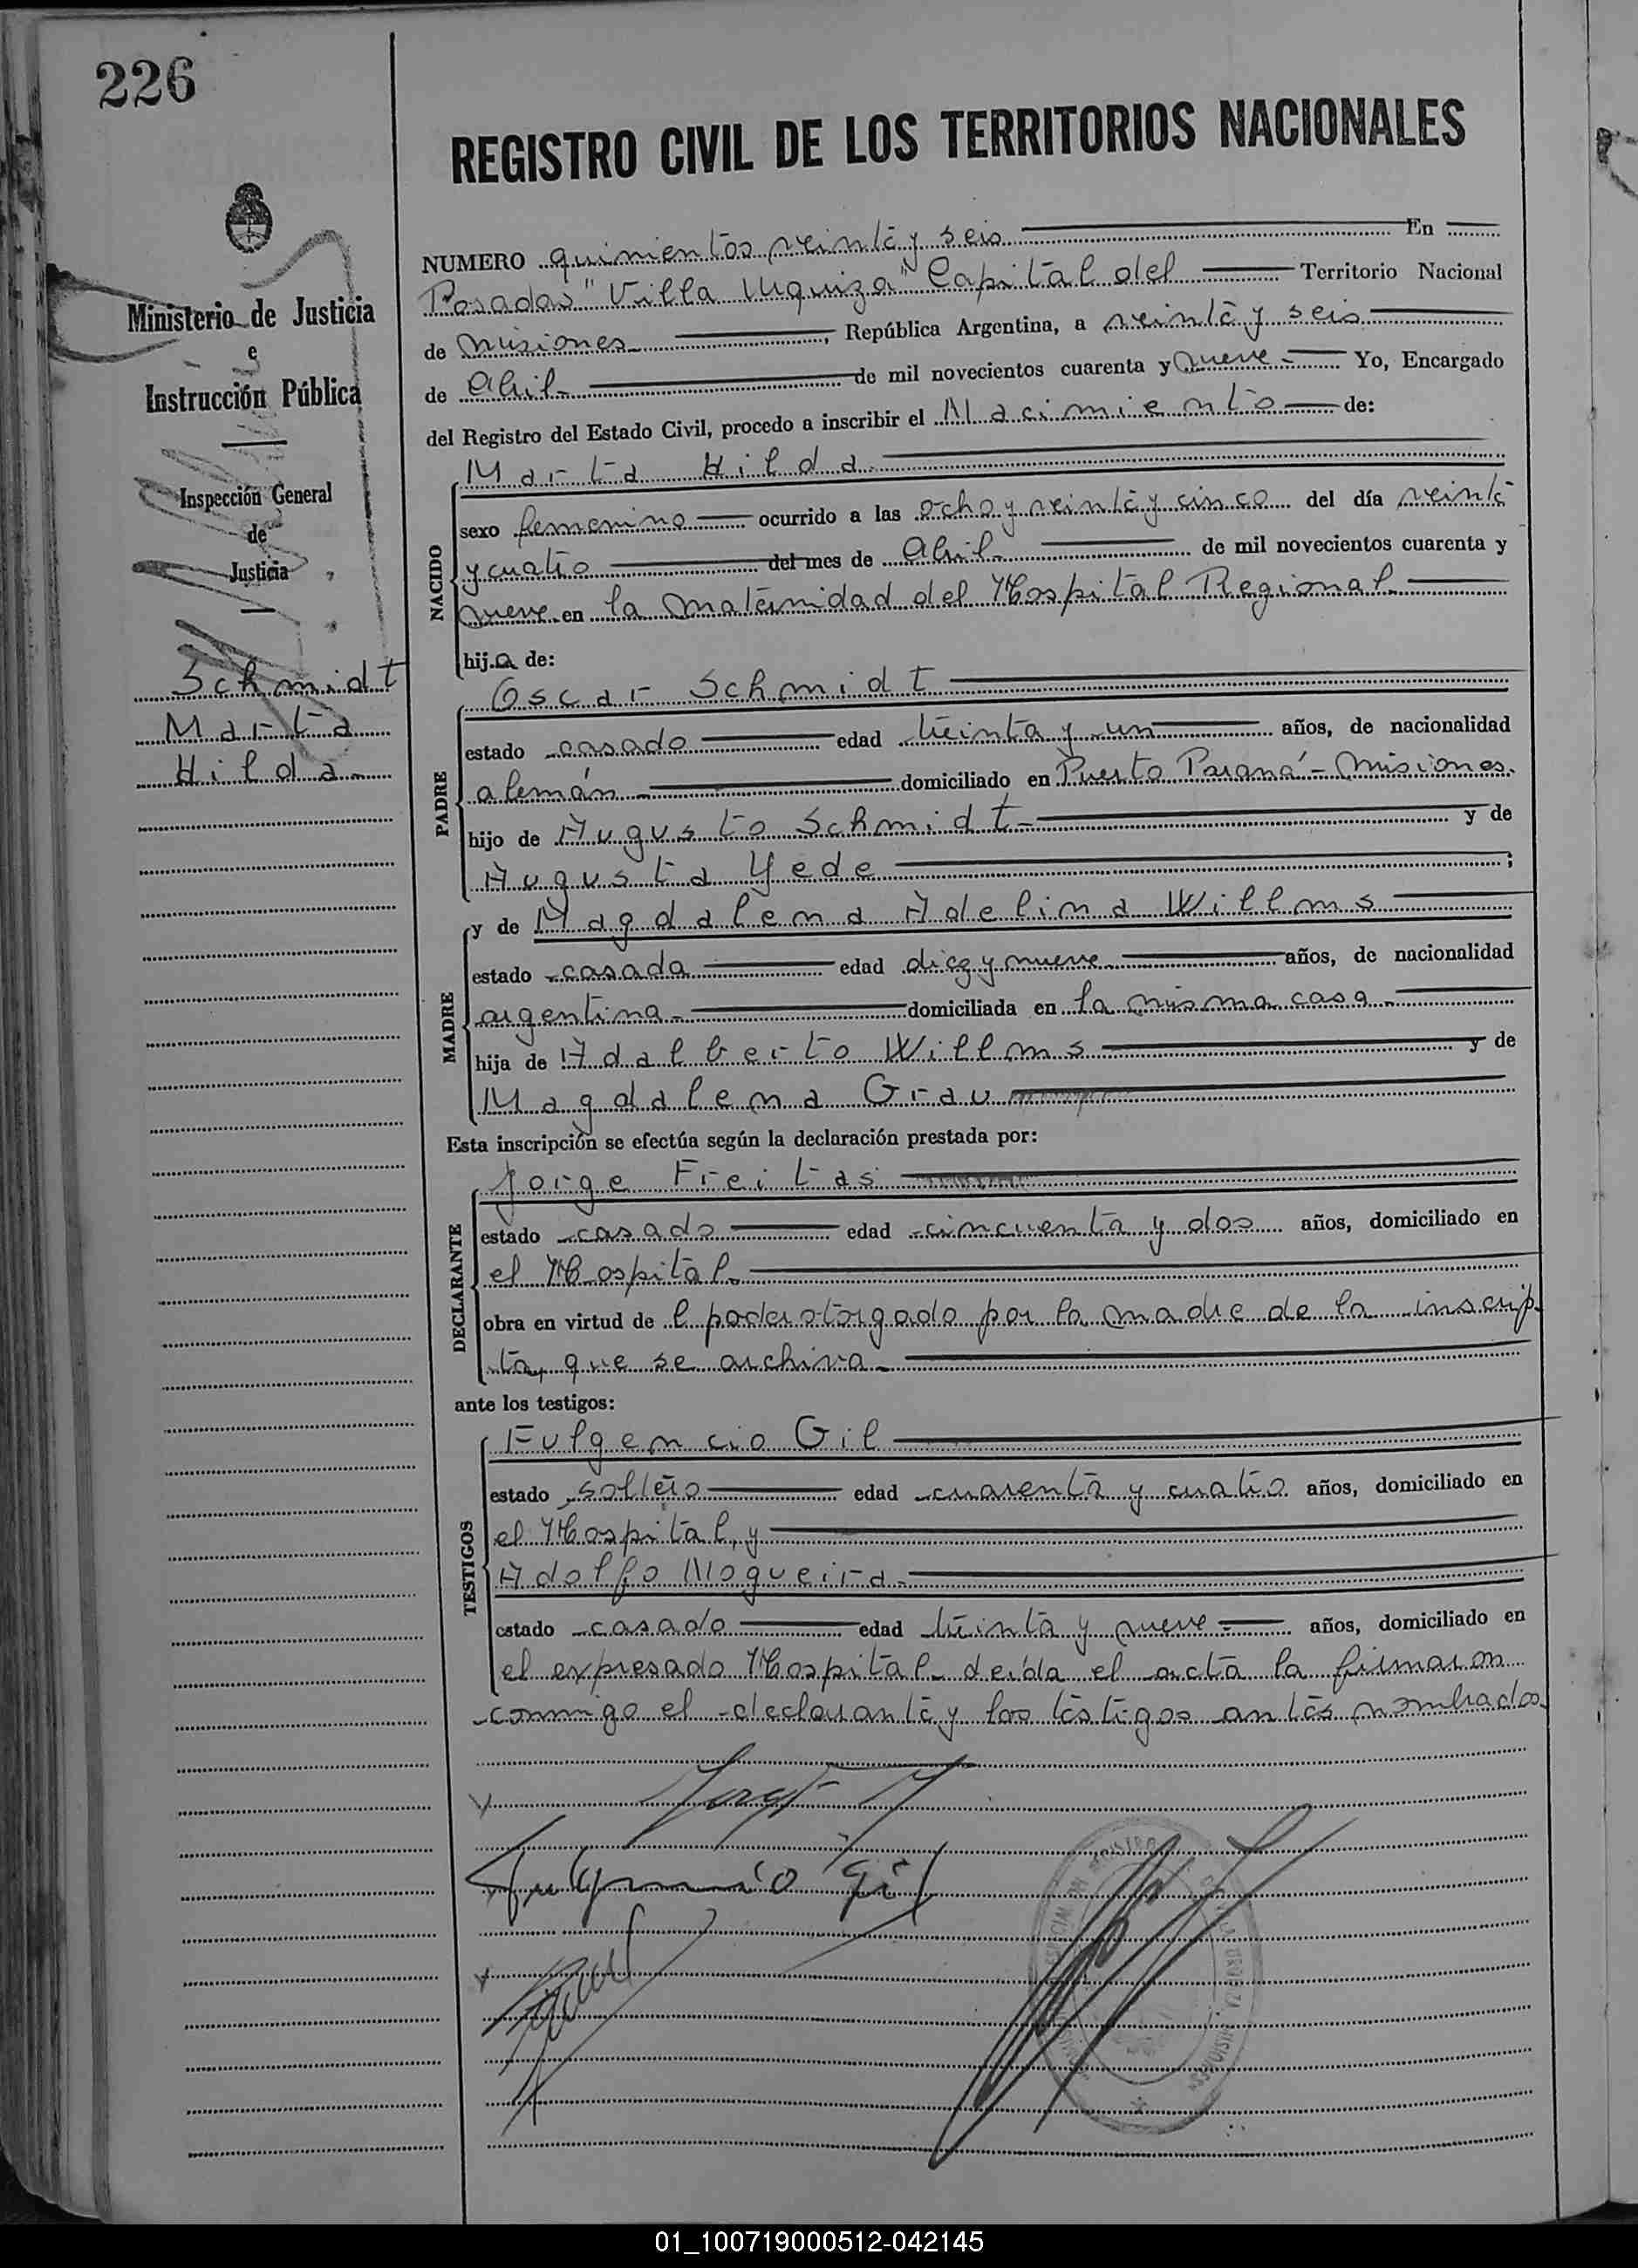 226
REGISTRO CIVIL DE LOS TERRITORIOS NACIONALES
Ministerio de Justicia
e
Instrucción Pública
Inspección General
de
Justicia
Schmidt
Marta
Hilda
NUMERO quinientos veinte y seis En
Posadas "Villa Urquiza" Capital del Territorio Nacional
de Misiones, República Argentina, a veinte y seis
de Abril de mil novecientos cuarenta y nueve Yo, Encargado
del Registro del Estado Civil, procedo a inscribir el Nacimiento de:
NACIDO
Marta Hilda
sexo femenino ocurrido a las ocho y veinte y cinco del día veinte
y cuatro del mes de Abril de mil novecientos cuarenta y
nueve en la maternidad del Hospital Regional
hija de:
PADRE
Oscar Schmidt
estado casado edad treinta y un años, de nacionalidad
alemán domiciliado en Puerto Paraná - Misiones.
hijo de Augusto Schmidt y de
Augusta Yede;
MADRE
y de Magdalena Adelina Willms
estado casada edad diez y nueve años, de nacionalidad
argentina domiciliada en la misma casa
hija de Adalberto Willms y de
Magdalena Grau
Esta inscripción se efectúa según la declaración prestada por:
DECLARANTE
Jorge Freitas
estado casado edad cincuenta y dos años, domiciliado en
el Hospital.
obra en virtud del poder otorgado por la madre de la inscrip
ta, que se archiva
ante los testigos:
TESTIGOS
Fulgencio Gil
estado soltero edad cuarenta y cuatro años, domiciliado en
el Hospital, y
Adolfo Nogueira
estado casado edad treinta y nueve años, domiciliado en
el expresado Hospital. Leída el acta la firmaron
conmigo el declarante y los testigos antes nombrados.
Fulgencio Gil
01_100719000512-042145